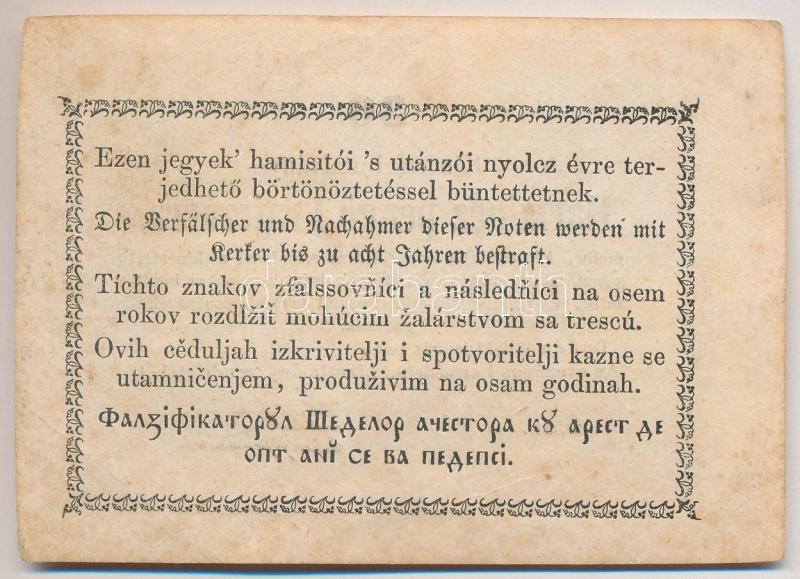 Ezen jegyek’ hamisitói ’s utánzói nyolcz évre ter-
jedhető börtönöztetéssel büntettetnek.
Die Verfälscher und Nachahmer dieser Noten werden mit
Kerker bis zu acht Jahren bestraft.
Tíchto znakov zfalssovňíci a následňíci na osem
rokov rozdlžiť mohúcim žalárstvom sa trescú.
Ovih cěduljah izkrivitelji i spotvoritelji kazne se
utamničenjem, produživim na osam godinah.
Фалꙃіфікаторꙋл Шеделор ачестора кꙋ арест де
опт анĭ се ва педепсі.
darabanth